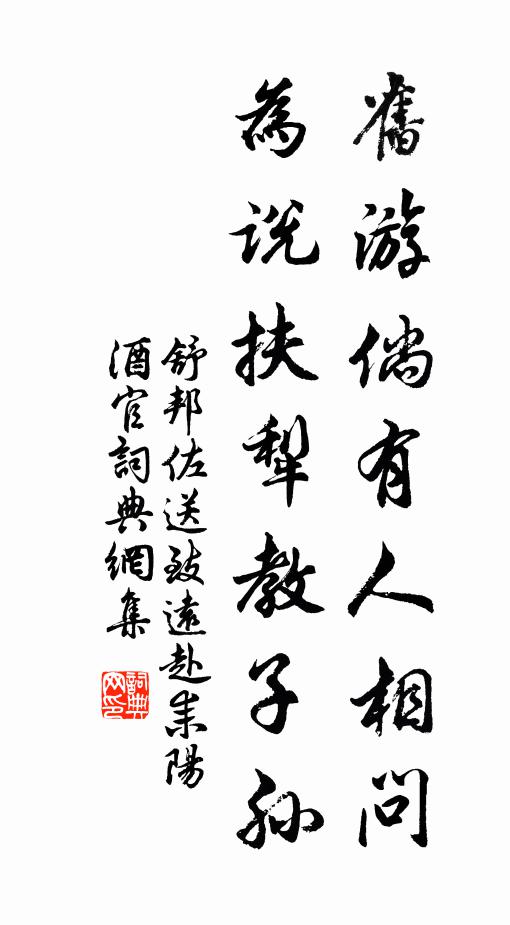 舊游倘有人相問
為説扶犁教子孫
舒邦佐送致遠赴耒陽
酒官詞典網集
詞典網印